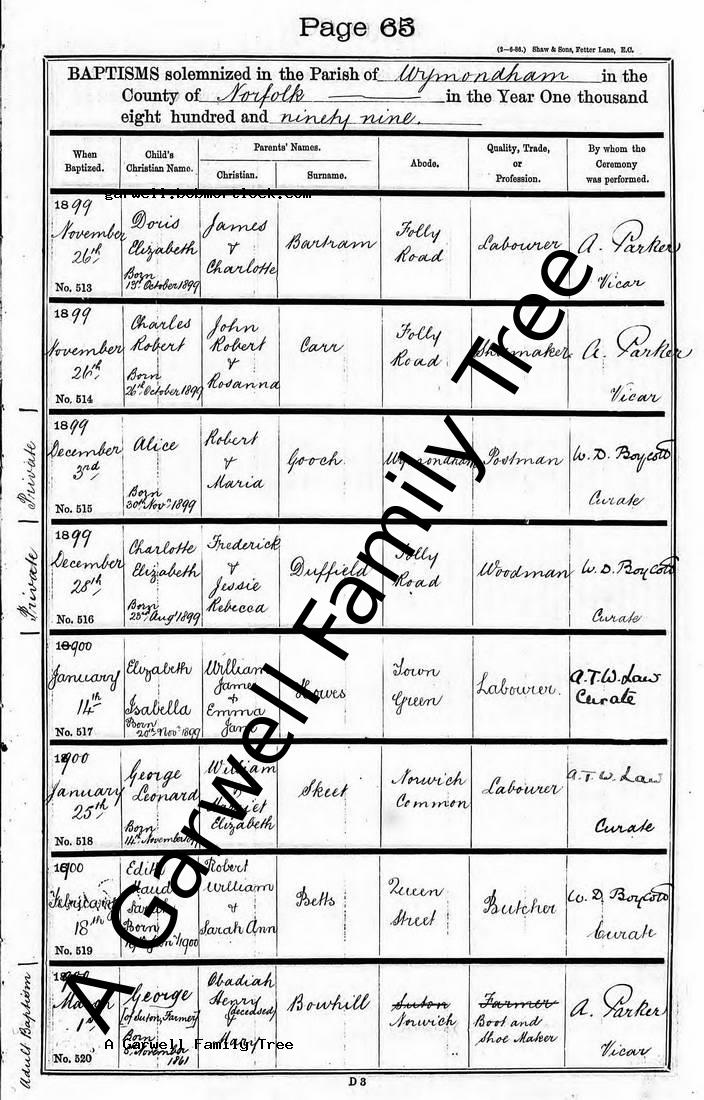 Page 65
(2—6-86.) Shaw & Sons, Fetter Lane, E.C.
BAPTISMS solemnized in the Parish of Wymondham in the
County of Norfolk in the Year One thousand
eight hundred and ninety nine.
When Baptized.
Child's Christian Name.
Parents' Names.
Christian.
Surname.
Abode.
Quality, Trade, or Profession.
By whom the Ceremony was performed.
garwell.bobmortlock.com
1899
November
26th
No. 513
Doris
Elizabeth
Born
October 1899
James
&
Charlotte
Bartram
Folly
Road
Labourer
A. Parker
Vicar
1899
November
26th
No. 514
Charles
Robert
Born
26th October 1899
John
Robert
&
Rosanna
Carr
Folly
Road
Shoemaker
A. Parker
Vicar
Private
1899
December
3rd
No. 515
Alice
Born
30th Novr 1899
Robert
&
Maria
Gooch
Wymondham
Postman
W. D. Boycott
Curate
Private
1899
December
28th
No. 516
Charlotte
Elizabeth
Born
Augt 1899
Frederick
&
Jessie
Rebecca
Duffield
Folly
Road
Woodman
W. D. Boycott
Curate
1900
January
14th
No. 517
Elizabeth
Isabella
Born
20th Novr 1899
William
James
&
Emma
Jane
Howes
Town
Green
Labourer.
A.T.W. Law
Curate
1900
January
25th
No. 518
George
Leonard
Born
14th November
William
&
Harriet
Elizabeth
Skeet
Norwich
Common
Labourer
A.T.W. Law
Curate
1900
February
18th
No. 519
Edith
Maud
Born
1900
Robert
William
&
Sarah Ann
Betts
Queen
Street
Butcher
W. D. Boycott
Curate
Adult Baptism
1900
March
1st
No. 520
George
[of Suton, Farmer]
Born
November
1861
Obadiah
Henry
(deceased)
&
Mary
Bowhill
Suton
Norwich
Farmer
Boot and
Shoe Maker
A. Parker
Vicar
A Garwell Family Tree
A Garwell Family Tree
D 3